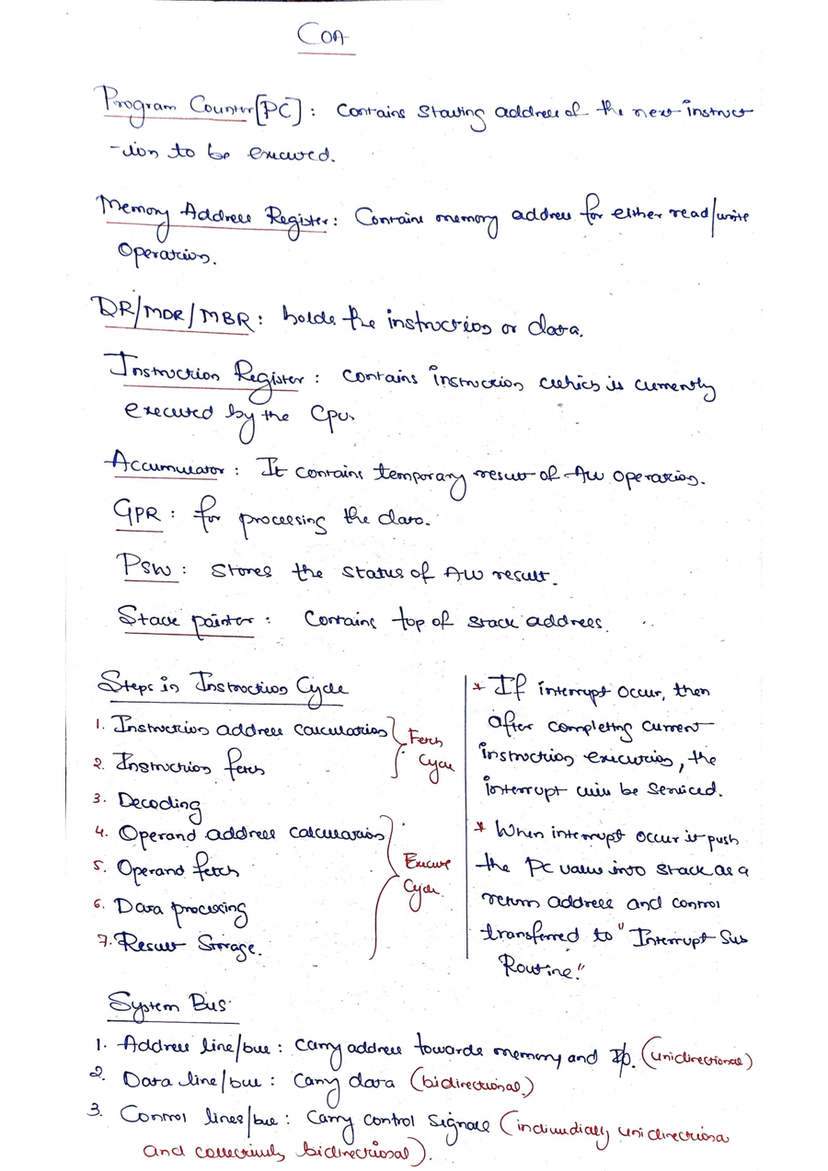 COA
Program Counter[PC] : Contains starting address of the next instruct
-ion to be executed.
Memory Address Register : Contains memory address for either read/write
Operation.
DR/MDR/MBR : holds the instruction or data.
Instruction Register : contains instruction which is currently
executed by the CPU.
Accumulator : It contains temporary result of ALU operation.
GPR : for processing the data.
PSW : stores the status of ALU result.
Stack pointer : Contains top of stack address.
Steps in Instruction Cycle
1. Instruction address calculation
2. Instruction fetch
Fetch
Cycle
3. Decoding
4. Operand address calculation
5. Operand fetch
6. Data processing
7. Result Storage.
Execute
Cycle
* If interrupt occur, then
after completing current
instruction execution, the
interrupt will be serviced.
* When interrupt occur it push
the PC value into stack as a
return address and control
transferred to "Interrupt Sub
Routine."
System Bus
1. Address line/bus : Carry address towards memory and I/O. (unidirectional)
2. Data line/bus : Carry data (bidirectional)
3. Control lines/bus : Carry control signals (individually unidirectional
and collectively bidirectional).